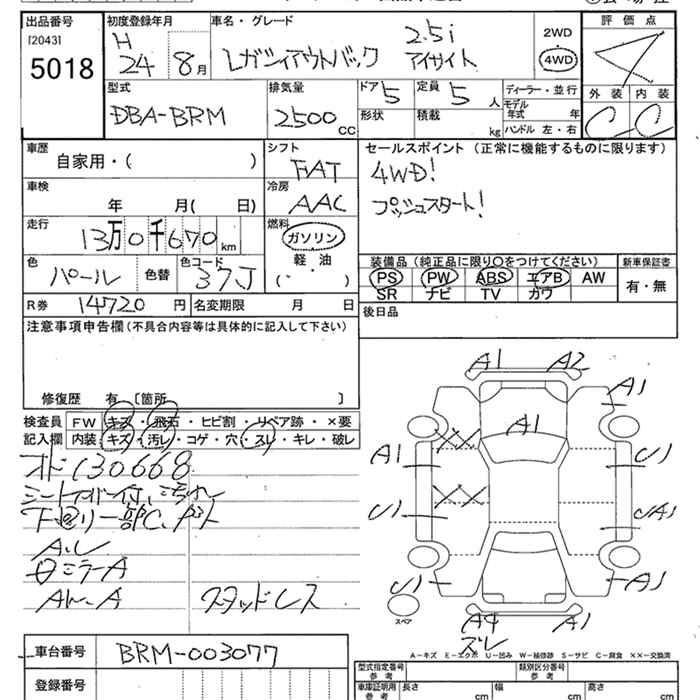 出品番号
[2043]
5018
初度登録年月
H
24 8月
車名・グレード
レガシィアウトバック
2.5i
アイサイト
2WD
4WD
評価点
4
外装 内装
C C
型式
DBA-BRM
排気量
2500 CC
ドア 5
形状
定員 5 人
積載 kg
ディーラー・並行
モデル年式 年
ハンドル 左・右
車歴
自家用・( )
シフト
FAT
車検
年 月( 日)
冷房
AAC
走行
13万0千670 km
燃料
ガソリン
軽・油
( )
色
パール
色替
色コード
37J
R券 14720 円
名変期限 月 日
セールスポイント(正常に機能するものに限ります)
4WD!
プッシュスタート!
装備品(純正品に限り○をつけてください)
新車保証書
PS PW ABS エアB AW
SR ナビ TV カワ
有・無
後日品
注意事項申告欄(不具合内容等は具体的に記入して下さい)
修復歴 有 [箇所 ]
検査員記入欄
FW キズ・飛石・ヒビ割・リペア跡・×要
内装 キズ・汚レ・コゲ・穴・スレ・キレ・破レ
オド130668
シート
下回り一部C、
ミラーA
スタッドレス
A1 A2
A1
A1
A1
A1
U1
U1
U1
A1
A4
ズレ
A1
スペア
A-キズ E-エクボ U-凹み W-補修跡 S-サビ C-腐食 XX-交換済
車台番号
BRM-003077
登録番号
型式指定番号
参考
類別区分番号
参考
車庫証明用
参考
長さ cm
幅 cm
高さ cm